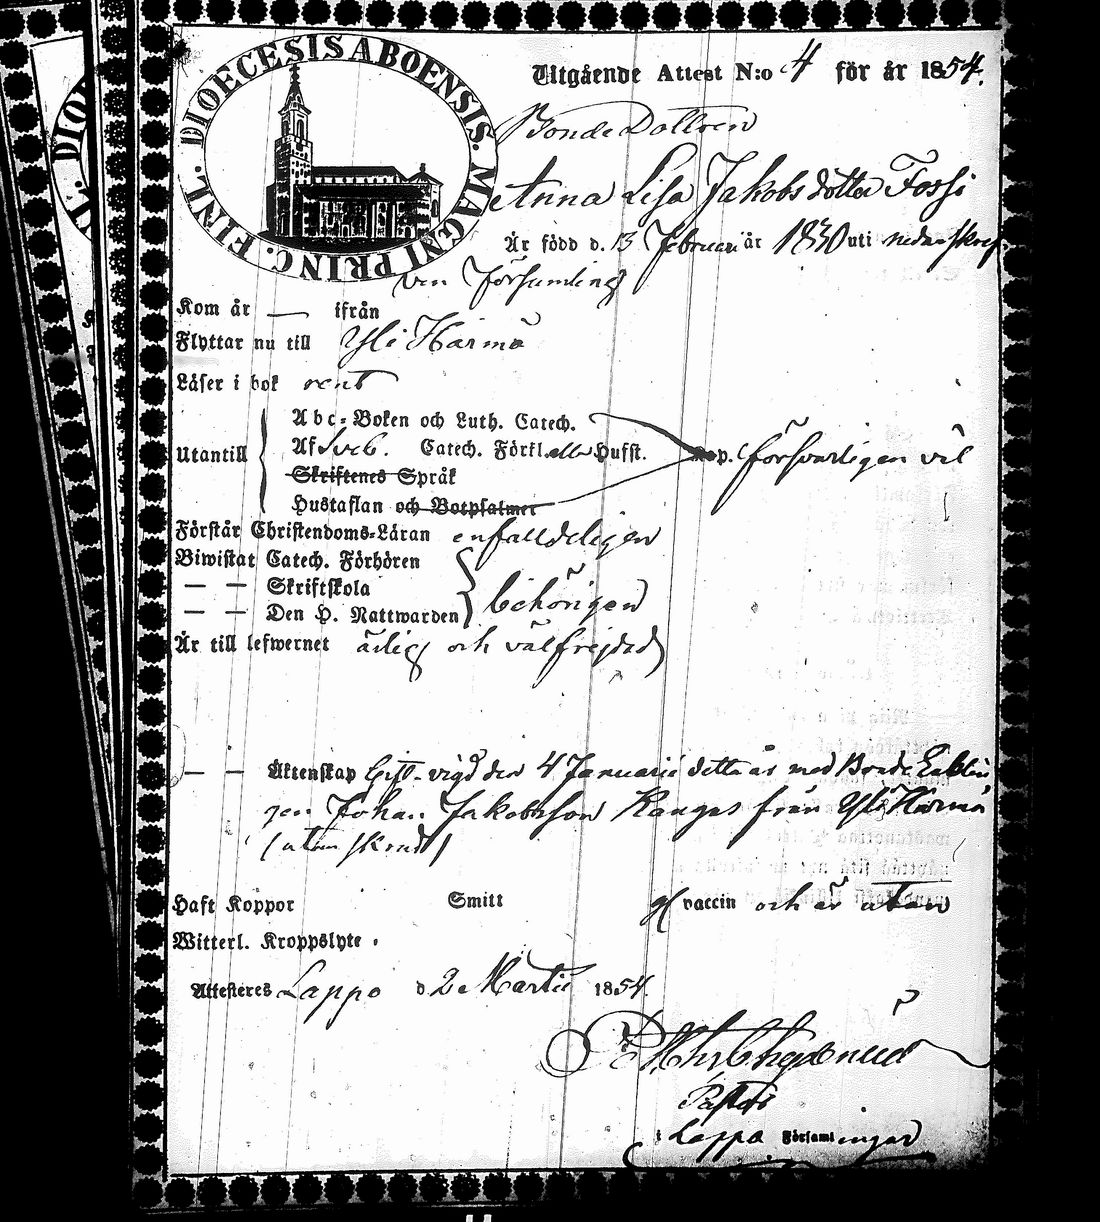 DIOECESIS ABOENSIS. MAGNI PRINC. FINL.
Utgående Attest N:o 4 för år 1854.
Bonde Dottren
Anna Lisa Jakobsdotter Fossi
Är född d. 13 Februari år 1830 uti nedanskref-
ven församling
Kom år — ifrån
Flyttar nu till Yli Härmä
Läser i bok rent
Abc-Boken och Luth. Catech.
Utantill Af Sveb. Catech. Förkl. eller Hufst. Rop. försvarligen väl
Skriftenes Språk
Hustaflan och Botpsalmer
Förstår Christendoms-Läran enfalldeligen
Biwistat Catech. Förhören
— — Skriftskola behörigen
— — Den H. Nattwarden
Är till lefwernet ärlig och välfrejdad
— — Äktenskap Gift, vigd den 4 Januarii detta år med Bonde
gen Johan Jakobsson Kangas från Yli Härmä
Haft Koppor Smitt vaccin och är utan
Witterl. Kroppslyte.
Attesteras Lappo d 2 Martii 1854.
Pastor
i Lappo Församlingar